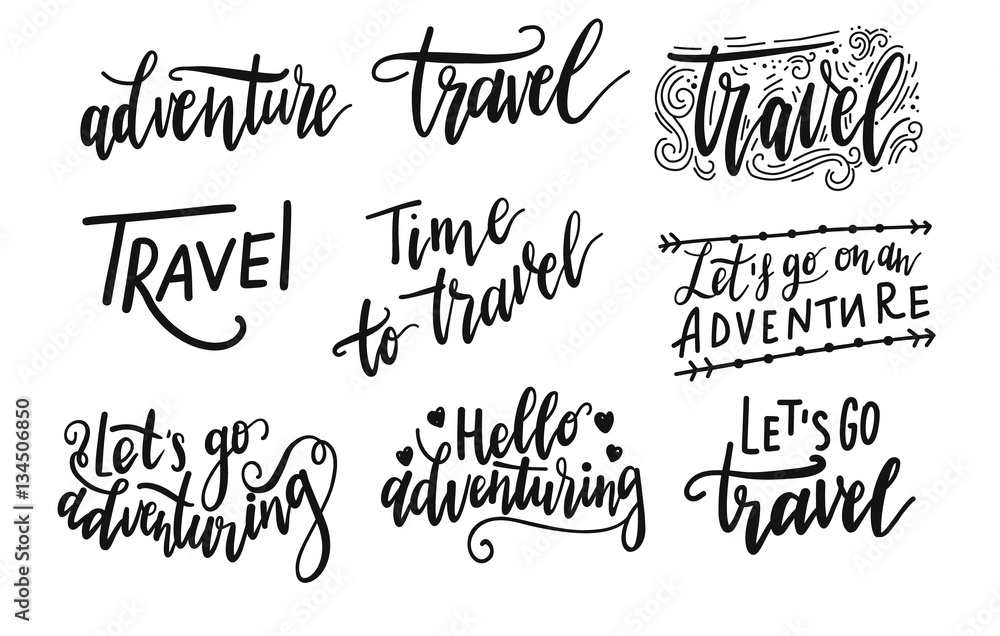 adventure
travel
travel
TRAVEl
Time
to travel
Let's go on an
ADVENTURE
Let's go
adventuring
Hello
adventuring
LET'S GO
travel
Adobe Stock | #134506850